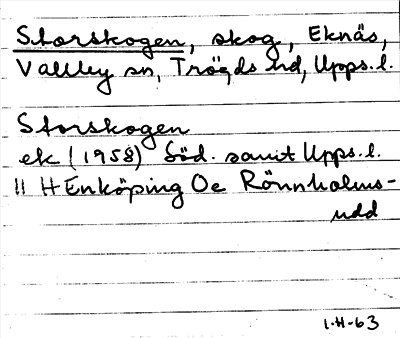 Storskogen, skog, Eknäs,
Vallby sn, Trögds hd, Upps. l.
Storskogen
ek (1958) Söd. samt Upps. l.
11 H Enköping Oe Rönnholms-
udd
1-H-63